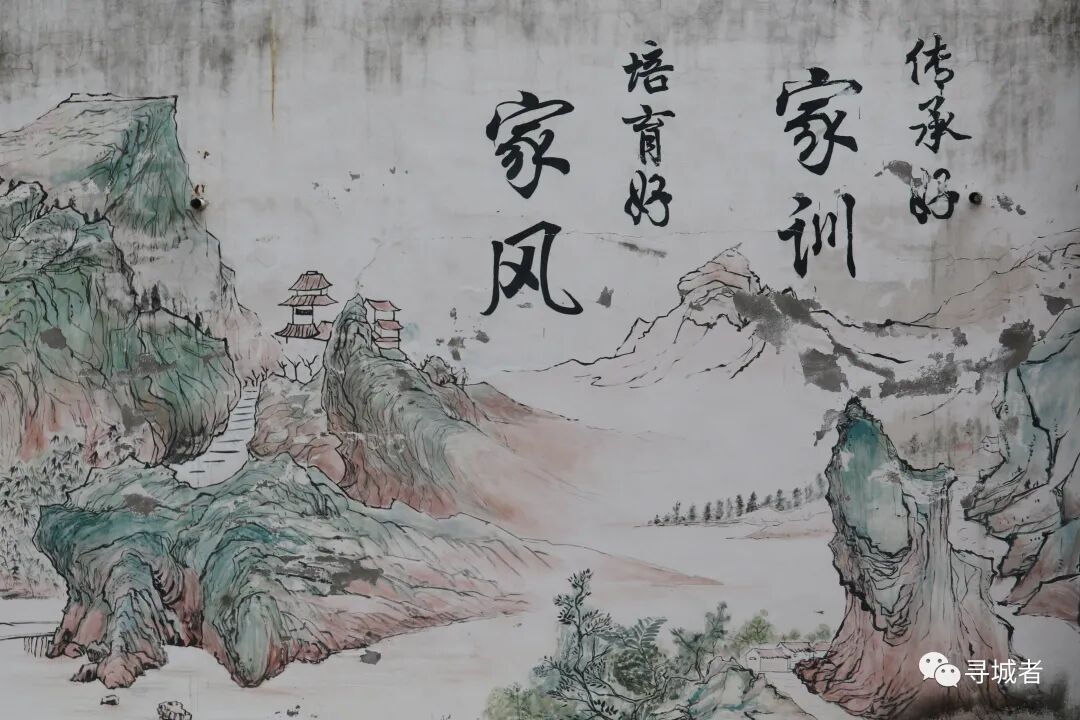 传承好
家训
培育好
家风
寻城者